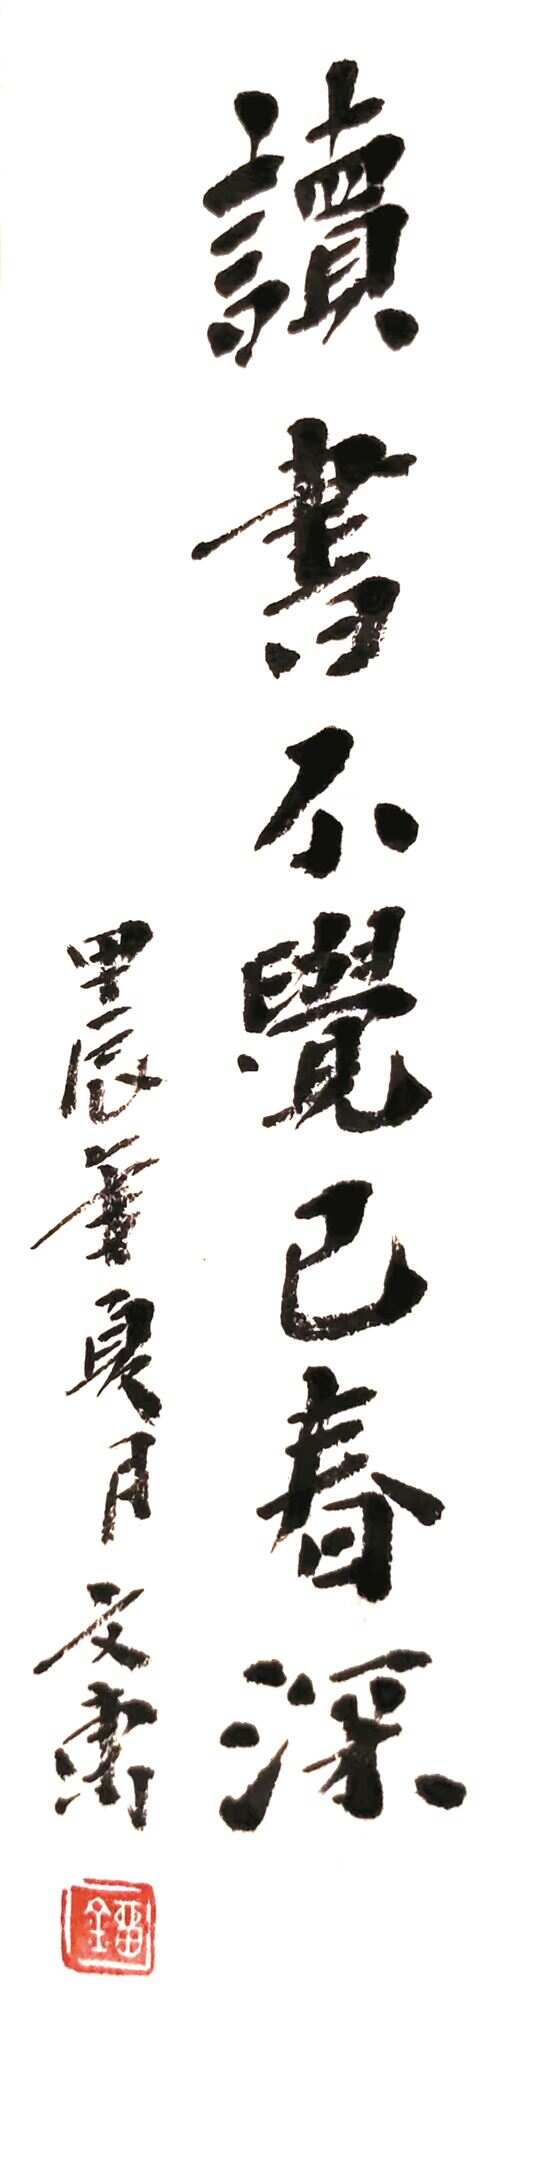 讀書不覺已春深
甲辰年良月文肅